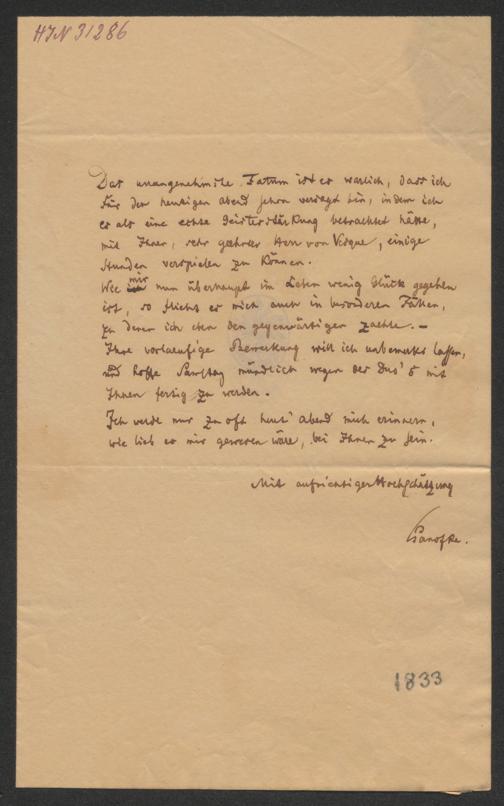 HIN 31286
Das unangenehmste Fatum ist es warlich, dass ich
für den heutigen abend schon versagt bin, indem ich
es als eine echte Geisterstärkung betrachtet hätte,
mit Ihnen, sehr geehrter Herr von Vesque, einige
Stunden verspielen zu können.
Wie mir nun überhaupt im Leben wenig Glück gegeben
ist, so flieht es mich auch in besonderen Fällen,
zu denen ich eben den gegenwärtigen zaehle. –
Ihre vorlaeufige Bemerkung will ich unbemerkt lassen,
und hoffe Samstag mündlich wegen des Duo's mit
Ihnen fertig zu werden.
Ich werde nur zu oft heut' abend mich erinnern,
wie lieb es mir gewesen wäre, bei Ihnen zu sein.
Mit aufrichtiger Hochschätzung
Panofka.
1833